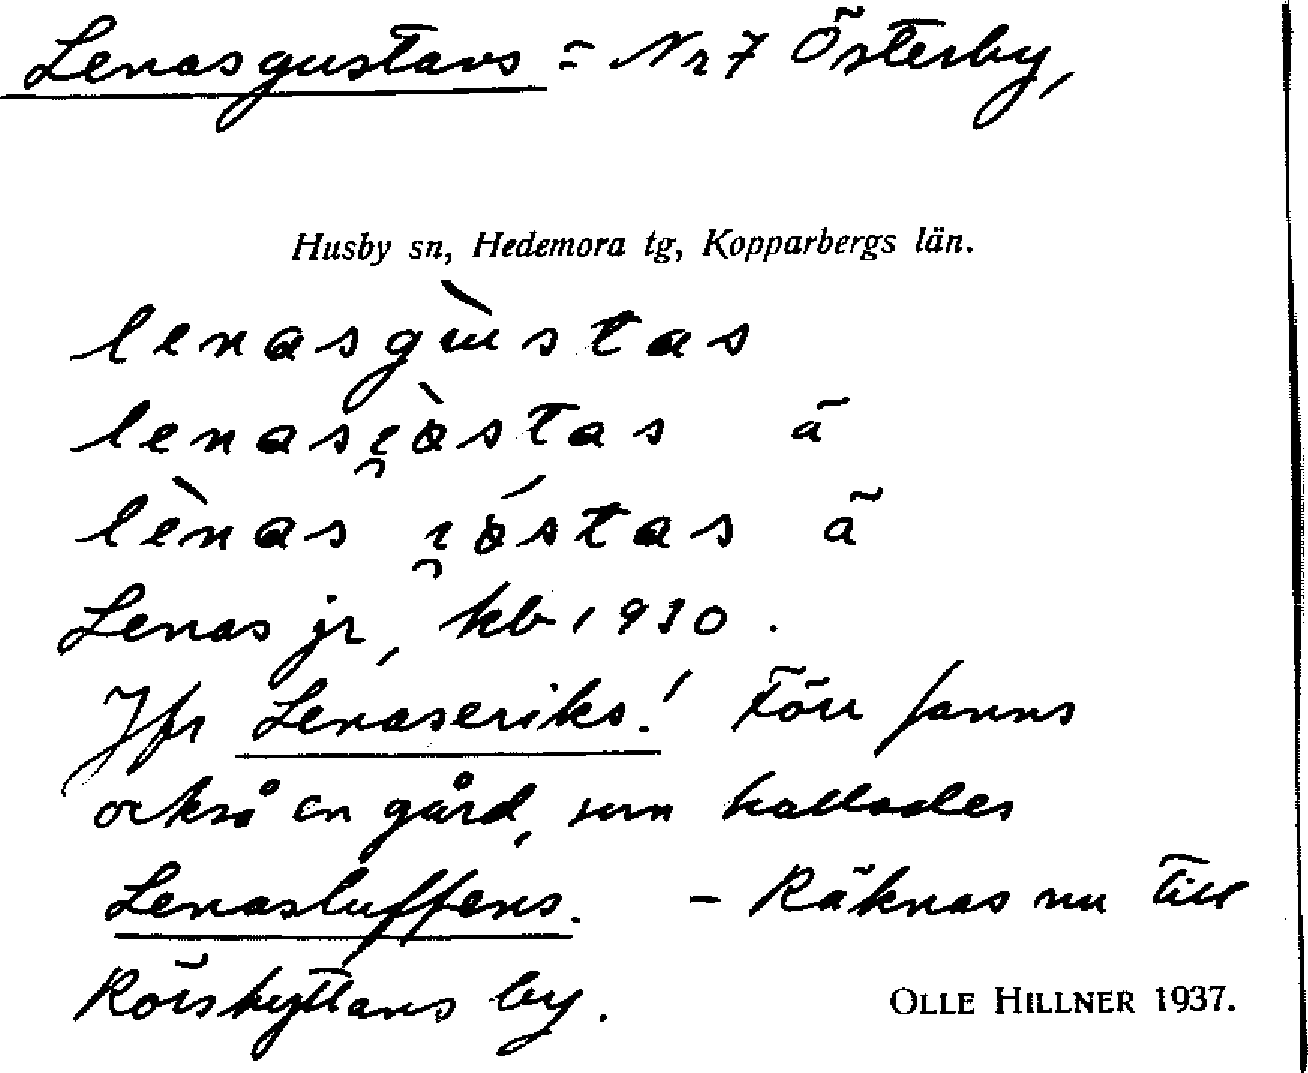 Lenasgustavs = Nr 7 Österby,
Husby sn, Hedemora tg, Kopparbergs län.
lenasgùstas
lenas ä
lènas ä
Lenas jr, kb 1930.
Jfr Lenaseriks! Förr fanns
också en gård, som kallades
Lenasluffens. – Räknas nu till
Rörshyttans by.
OLLE HILLNER 1937.